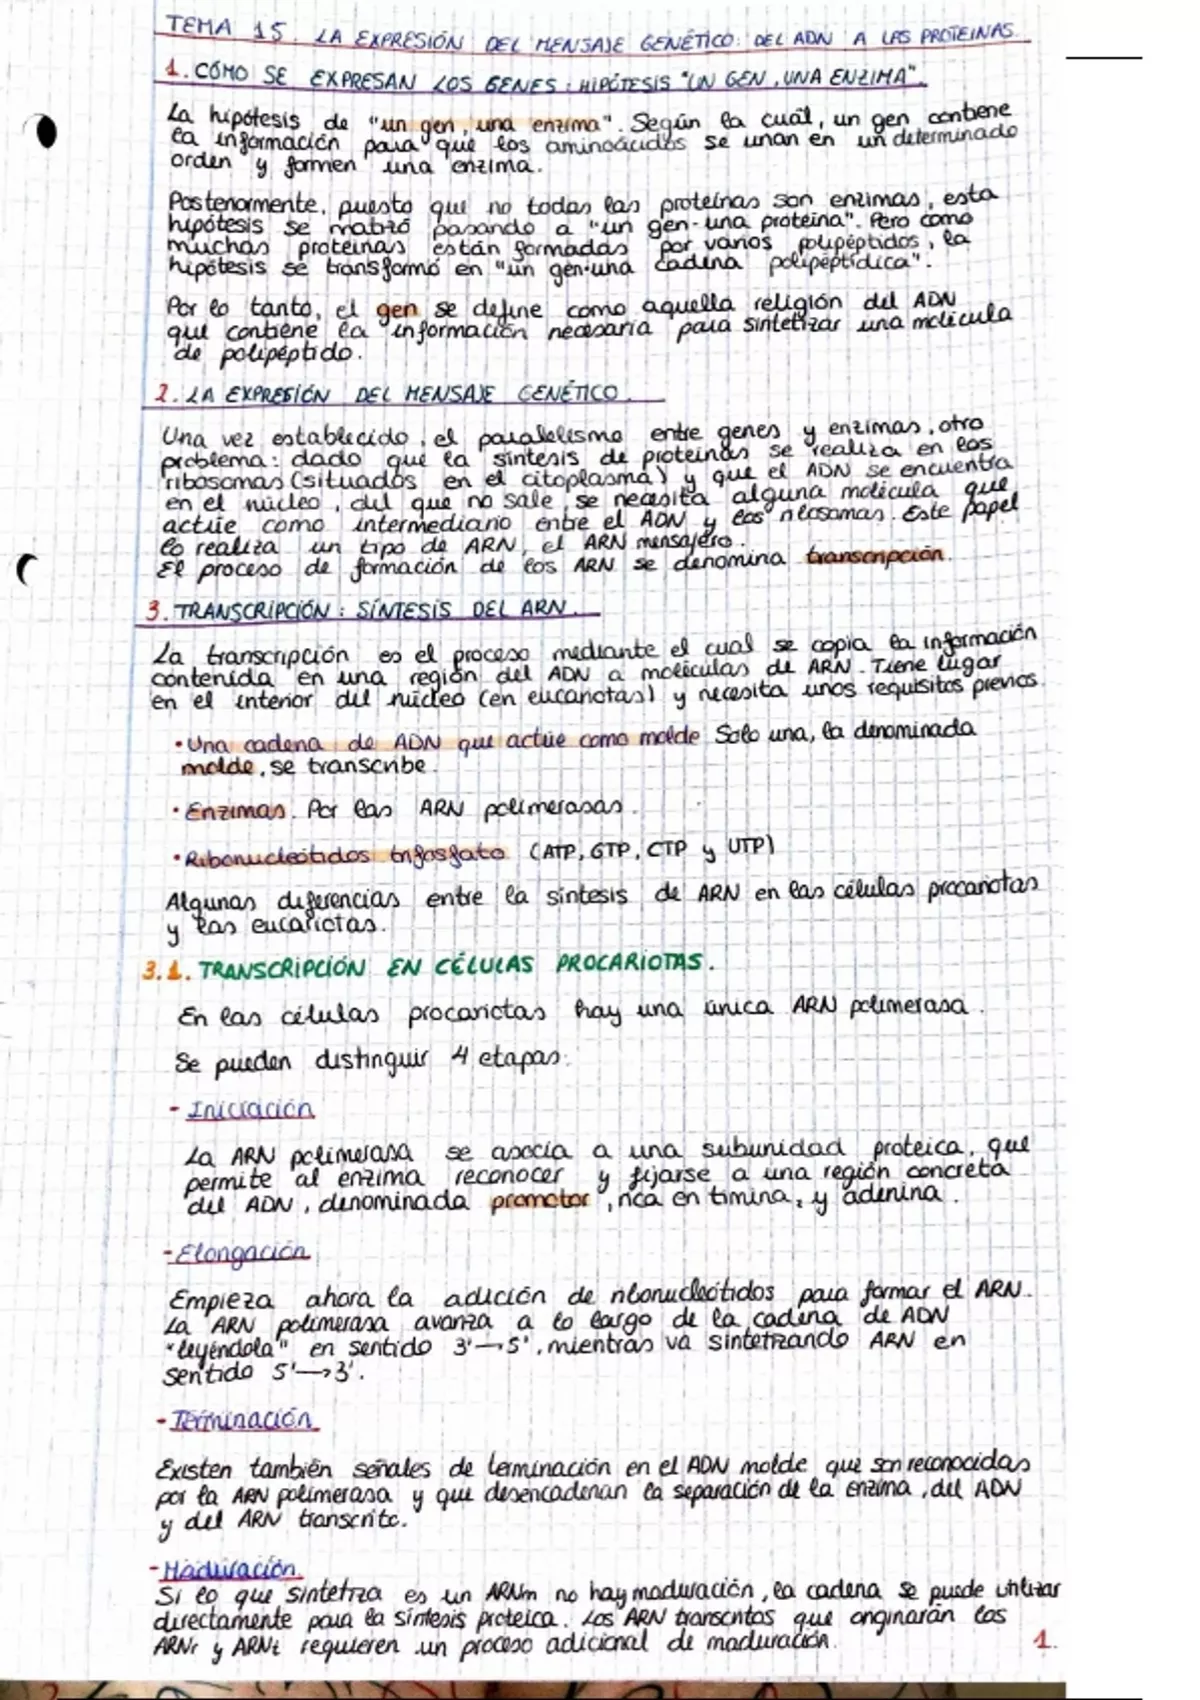 TEMA 15. LA EXPRESIÓN DEL MENSAJE GENÉTICO: DEL ADN A LAS PROTEINAS.
1. CÓMO SE EXPRESAN LOS GENES: HIPÓTESIS "UN GEN, UNA ENZIMA".
La hipótesis de "un gen, una enzima". Según la cuál, un gen contiene
la información para que los aminoácidos se unan en un determinado
orden y formen una enzima.
Posteriormente, puesto que no todas las proteínas son enzimas, esta
hipótesis se matizó pasando a "un gen-una proteína". Pero como
muchas proteínas están formadas por varios polipéptidos, la
hipótesis se transformó en "un gen-una cadena polipeptídica".
Por lo tanto, el gen se define como aquella religión del ADN
que contiene la información necesaria para sintetizar una molécula
de polipéptido.
2. LA EXPRESIÓN DEL MENSAJE GENÉTICO.
Una vez establecido, el paralelismo entre genes y enzimas, otro
problema: dado que la síntesis de proteínas se realiza en los
ribosomas (situados en el citoplasma) y que el ADN se encuentra
en el núcleo, del que no sale, se necesita alguna molécula que
actúe como intermediario entre el ADN y los ribosomas. Este papel
lo realiza un tipo de ARN, el ARN mensajero.
El proceso de formación de los ARN se denomina transcripción.
3. TRANSCRIPCIÓN: SÍNTESIS DEL ARN.
La transcripción es el proceso mediante el cual se copia la información
contenida en una región del ADN a moléculas de ARN. Tiene lugar
en el interior del núcleo (en eucariotas) y necesita unos requisitos previos.
· Una cadena de ADN que actúe como molde Solo una, la denominada
molde, se transcribe.
· Enzimas. Por las ARN polimerasas.
· Ribonucleótidos trifosfato (ATP, GTP, CTP y UTP)
Algunas diferencias entre la síntesis de ARN en las células procariotas
y las eucariotas.
3.1. TRANSCRIPCIÓN EN CÉLULAS PROCARIOTAS.
En las células procariotas hay una única ARN polimerasa.
Se pueden distinguir 4 etapas:
- Iniciación
La ARN polimerasa se asocia a una subunidad proteica, que
permite al enzima reconocer y fijarse a una región concreta
del ADN, denominada promotor, rica en timina, y adenina.
- Elongación
Empieza ahora la adición de ribonucleótidos para formar el ARN.
La ARN polimerasa avanza a lo largo de la cadena de ADN
"leyéndola" en sentido 3'→5', mientras va sintetizando ARN en
sentido 5'→3'.
- Terminación
Existen también señales de terminación en el ADN molde que son reconocidas
por la ARN polimerasa y que desencadenan la separación de la enzima, del ADN
y del ARN transcrito.
- Maduración
Si lo que sintetiza es un ARNm no hay maduración, la cadena se puede utilizar
directamente para la síntesis proteica. Los ARN transcritos que originarán los
ARNr y ARNt requieren un proceso adicional de maduración.
1.